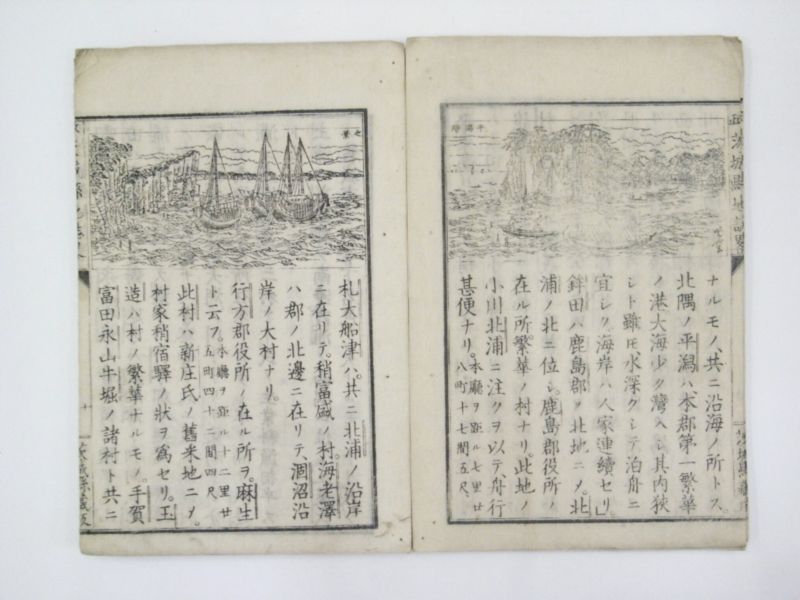 ナルモノ、共ニ沿海ノ所トス
北隅ノ平潟ハ、本郡第一繁華
ノ港大海少ク灣入シ其内狹
シト雖モ水深クシテ泊舟ニ
宜シク、海岸ハ人家連續セリ」
鉾田ハ鹿島郡ヲ北地ニメ。北
浦ノ北ニ位シ。鹿島郡役所ノ
在ル所。繁華ノ村ナリ。此地ノ
小川北浦ニ注クヲ以テ舟行
甚便ナリ。本廳ヲ距ル七里廿八町十七間五尺、
札大船津ハ。共ニ北浦ノ沿岸
ニ在リテ。稍富盛ノ村。海老澤
ハ郡ノ北邊ニ在リテ、涸沼沿
岸ノ大村ナリ。
行方郡役所ノ在ル所ヲ。麻生
ト云フ。本廳ヲ距ル十二里廿五町四十二間四尺、
此村ハ新庄氏ノ舊米地ニメ。
村家稍宿驛ノ狀ヲ爲セリ。玉
造ハ村ノ繁華ナルモノ。手賀
富田永山牛堀ノ諸村ト共ニ